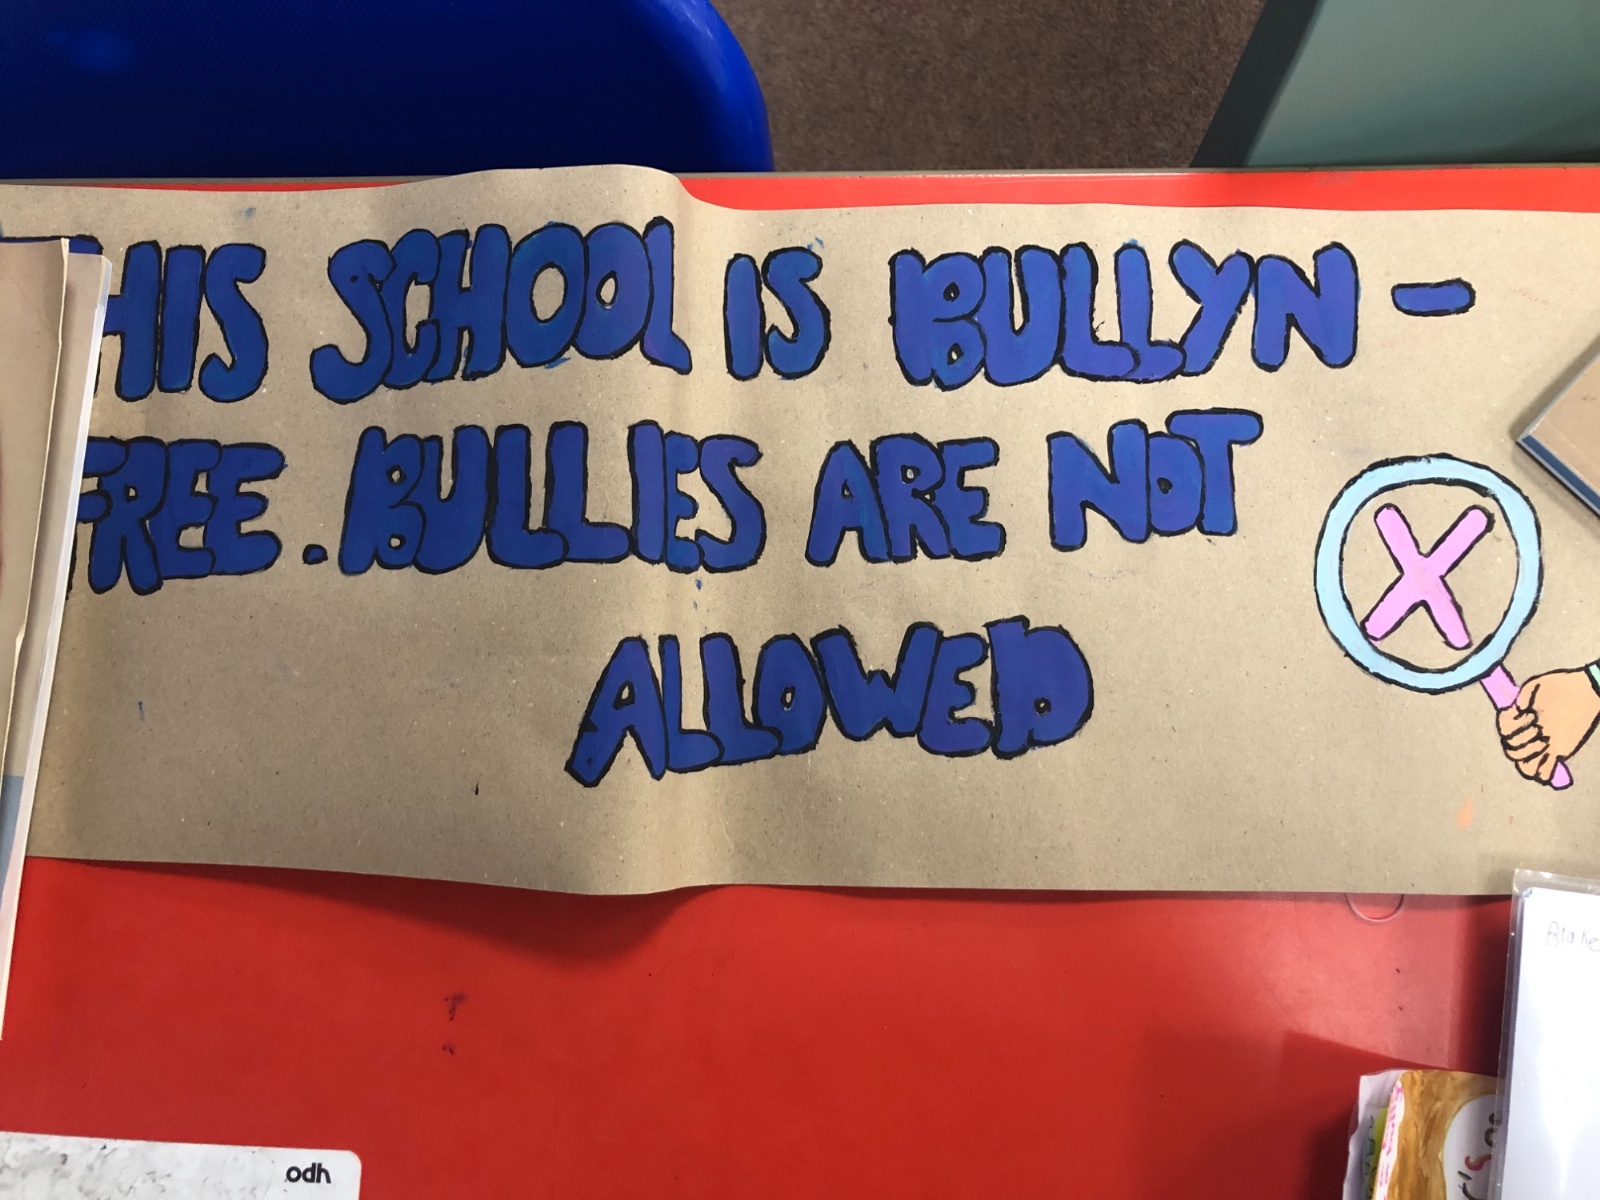 HIS SCHOOL IS BULLYN-
FREE. BULLIES ARE NOT
ALLOWED
Blake
odh